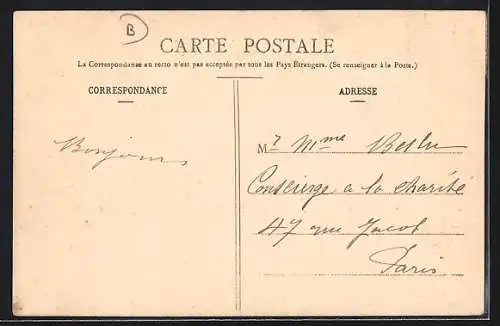 B
CARTE POSTALE
La Correspondance au recto n'est pas acceptée par tous les Pays Étrangers. (Se renseigner à la Poste.)
CORRESPONDANCE
Bonjours
ADRESSE
M r Mme
Concierge a la charité
47 rue Jacob
Paris